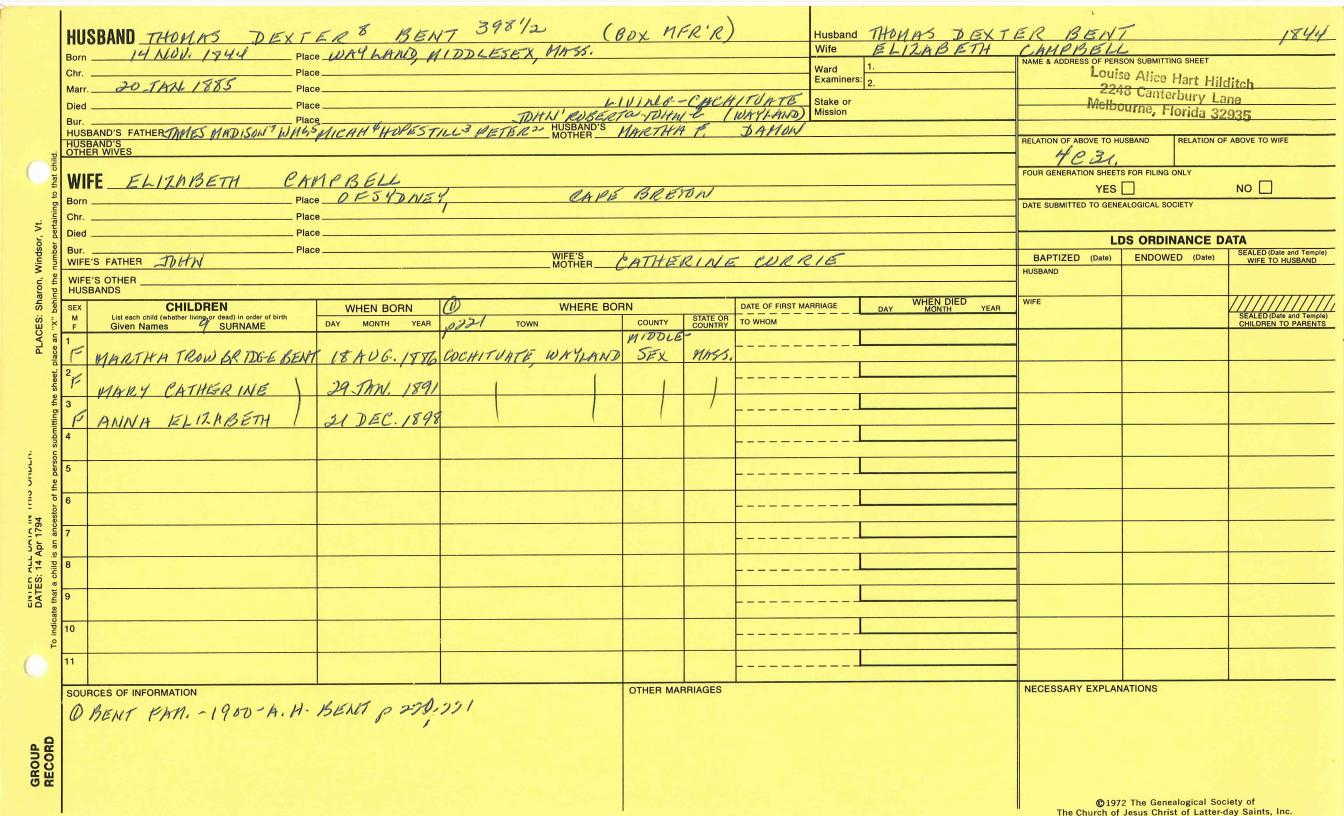 HUSBAND THOMAS DEXTER 8 BENT 398 1/2 (BOX MFR'R)
Born 14 NOV. 1844 Place WAYLAND, MIDDLESEX, MASS.
Chr. Place
Marr. 20 JAN 1885 Place
Died Place LIVING - COCHITUATE
Bur. Place JOHN' ROBERT JOHN (WAYLAND)
HUSBAND'S FATHER JAMES MADISON7 WM MICAH4 HOPESTILL3 PETER2 HUSBAND'S MOTHER MARTHA P. DAMON
HUSBAND'S OTHER WIVES
WIFE ELIZABETH CAMPBELL
Born Place OF SYDNEY, CAPE BRETON
Chr. Place
Died Place
Bur. Place
WIFE'S FATHER JOHN WIFE'S MOTHER CATHERINE CURRIE
WIFE'S OTHER HUSBANDS
Husband THOMAS DEXTER BENT 1844
Wife ELIZABETH CAMPBELL
Ward Examiners: 1. 2.
Stake or Mission
NAME & ADDRESS OF PERSON SUBMITTING SHEET
Louise Alice Hart Hilditch
2248 Canterbury Lane
Melbourne, Florida 32935
RELATION OF ABOVE TO HUSBAND RELATION OF ABOVE TO WIFE
4C3r.
FOUR GENERATION SHEETS FOR FILING ONLY
YES NO
DATE SUBMITTED TO GENEALOGICAL SOCIETY
LDS ORDINANCE DATA
BAPTIZED (Date) ENDOWED (Date) SEALED (Date and Temple) WIFE TO HUSBAND
HUSBAND
WIFE
SEALED (Date and Temple) CHILDREN TO PARENTS
SEX M F CHILDREN WHEN BORN WHERE BORN DATE OF FIRST MARRIAGE WHEN DIED
List each child (whether living or dead) in order of birth
Given Names 9 SURNAME DAY MONTH YEAR ① p221 TOWN COUNTY STATE OR COUNTRY TO WHOM DAY MONTH YEAR
1 F MARTHA TROWBRIDGE BENT 18 AUG. 1886 COCHITUATE, WAYLAND MIDDLE-SEX MASS.
2 F MARY CATHERINE 29 JAN. 1891
3 F ANNA ELIZABETH 21 DEC. 1898
4
5
6
7
8
9
10
11
SOURCES OF INFORMATION
① BENT FAM. - 1900 - A.H. BENT p 220, 221
OTHER MARRIAGES
NECESSARY EXPLANATIONS
©1972 The Genealogical Society of
The Church of Jesus Christ of Latter-day Saints, Inc.
PLACES: Sharon, Windsor, Vt.
ENTER ALL DATA IN THIS ORDER:
DATES: 14 Apr 1794
To indicate that a child is an ancestor of the person submitting the sheet, place an "X" behind the number pertaining to that child.
GROUP RECORD